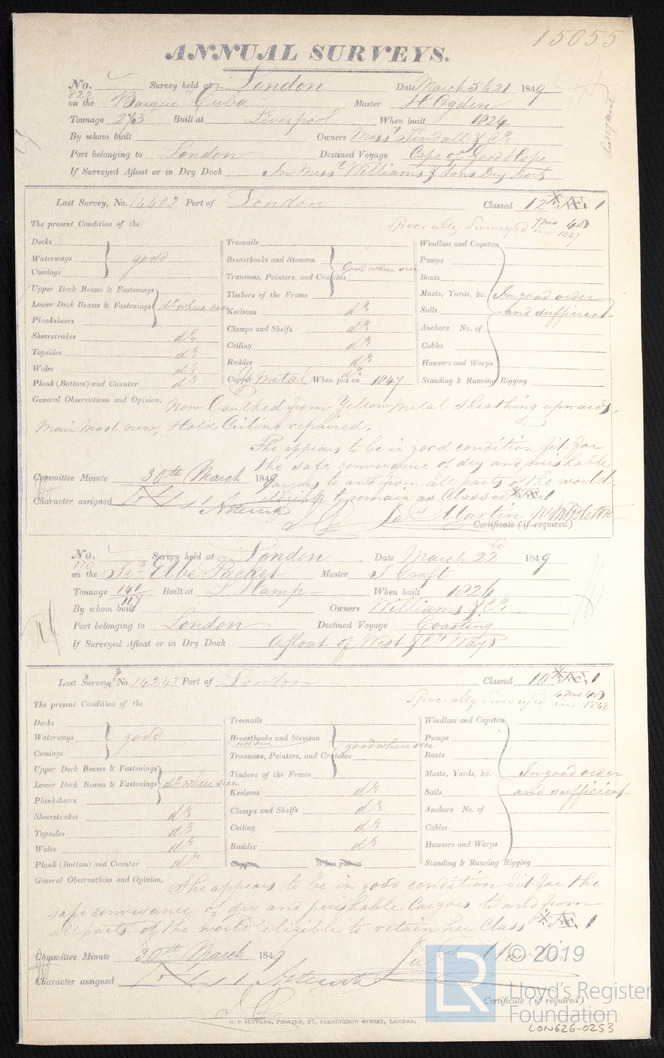 15055
ANNUAL SURVEYS.
No. 822 Survey held at London Date March 5 & 21 1849
on the Barque Cuba Master H Ogden
Tonnage 243 Built at Liverpool When built 1824
By whom built Owners Mess Tindall & Co
Port belonging to London Destined Voyage Cape of Good Hope
If Surveyed Afloat or in Dry Dock In Mess Williams & Sons Dry Dock
Last Survey, No. 14402 Port of London Classed 12 Æ 1
The present Condition of the Specially Surveyed in 1847
Decks
Waterways good
Comings
Upper Deck Beams & Fastenings
Lower Deck Beams & Fastenings do where seen
Planksheers
Sheerstrakes do
Topsides do
Wales do
Plank (Bottom) and Counter do
Treenails
Breasthooks and Stemson
Transoms, Pointers, and Crutches Good where seen
Timbers of the Frame
Keelsons do
Clamps and Shelfs do
Ceiling do
Rudder do
Copper Y Metal When put on 1847
Windlass and Capstan
Pumps
Boats
Masts, Yards, &c. In good order
Sails and sufficient
Anchors No. of
Cables
Hawsers and Warps
Standing & Running Rigging
General Observations and Opinion, Now Caulked from Yellow Metal Sheathing upwards,
Main Mast new, Hold Ceiling repaired.
She appears to be in good condition fit for
the safe conveyance of dry and perishable
Cargoes to and from all parts of the world
to remain as Classed Æ 1
Committee Minute 30th March 1849
Character assigned Jas Martin W Middleton
Certificate (if required)
No. 170 Survey held at London Date March 22 1849
on the Elbe Packet Master J Craft
Tonnage 141 / 117 Built at S Hamp When built 1826
By whom built Owners Williams & Co
Port belonging to London Destined Voyage Coasting
If Surveyed Afloat or in Dry Dock Afloat of West & Co Ways
Last Survey, No. 14243 Port of London Classed 10 Æ 1
The present Condition of the Specially Surveyed in 1848
Decks
Waterways good
Comings
Upper Deck Beams & Fastenings
Lower Deck Beams & Fastenings do where seen
Planksheers
Sheerstrakes do
Topsides do
Wales do
Plank (Bottom) and Counter do
Treenails
Breasthooks and Stemson
Transoms, Pointers, and Crutches good where seen
Timbers of the Frame
Keelsons do
Clamps and Shelfs do
Ceiling do
Rudder do
Copper When put on
Windlass and Capstan
Pumps
Boats
Masts, Yards, &c. In good order
Sails and sufficient
Anchors No. of
Cables
Hawsers and Warps
Standing & Running Rigging
General Observations and Opinion, She appears to be in good condition fit for the
safe conveyance of dry and perishable Cargoes to and from
all parts of the world eligible to retain her Class Æ 1
Committee Minute 30th March 1849 Jas Martin
Character assigned
Certificate (if required)
C. F. SEYFANG, PRINTER, 57, FARRINGDON STREET, LONDON.
© 2019
LR Lloyd's Register
Foundation
LON626-0253